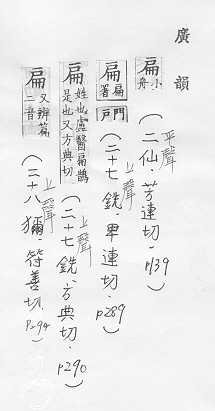 廣韻
扁 小舟 (二仙.芳連切.p139)
平聲
扁 扁署門戶 (二十七銑.卑連切.p289)
上聲
扁 姓也盧醫扁鵲是也又方典切 (二十七銑.方典切.p290)
上聲
扁 又辨篇二音 (二十八獮.符善切.p294)
上聲